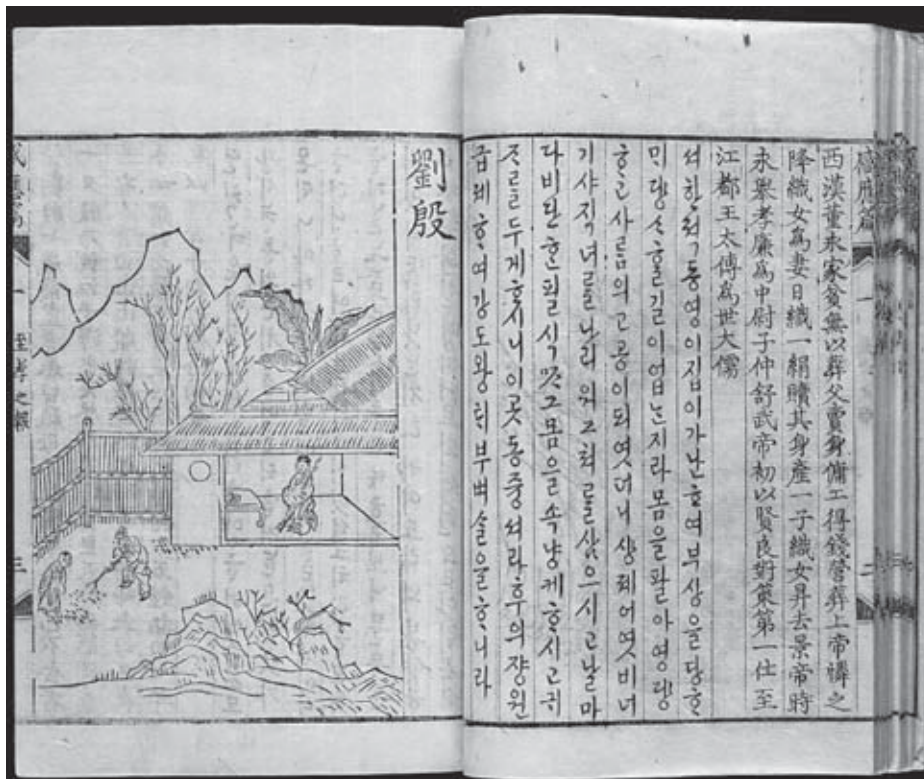 感應篇 一 二
西漢董永家貧無以葬父賣身傭工得錢營葬上帝憐之
降織女爲妻日織一絹贖其身産一子織女昇去景帝時
永擧孝廉爲中尉子仲舒武帝初以賢良對策第一仕至
江都王太傅爲世大儒
셔한 적 동영이 집이 가난ᄒᆞ여 부상을 당ᄒᆞ
ᄆᆡ 장ᄉᆞᄒᆞᆯ 길이 업ᄂᆞᆫ지라 몸을 팔아 영장
ᄒᆞ고 사ᄅᆞᆷ의 고공이 되엿더니 샹뎨 어엿비 녀
기샤 직녀ᄅᆞᆯ 나리워 그 쳐ᄅᆞᆯ 삼으시고 날마
다 비단 ᄒᆞᆫ 필식 ᄶᆞ 그 몸을 속냥케 ᄒᆞ시고 귀
ᄌᆞᄅᆞᆯ 두게 ᄒᆞ시니 이 곳 동중셔라 후의 쟝원
급뎨ᄒᆞ여 강도왕 ᄐᆡ부 벼슬을 ᄒᆞ니라
劉殷
感應篇 一 至孝之報 三